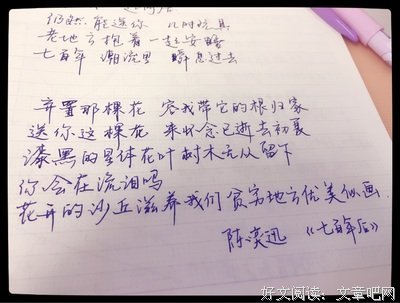 仍然能送你 儿时玩具
老地方抱着一起安睡
七百年 潮流里 瞬息过去
弃置那棵花 容我带它的根归家
送你这棵花 来怀念已逝去初夏
漆黑的星体花叶树木无从留下
你会在流泪吗
花开的沙丘滋养我们 贫穷地方优美似画
陈奕迅 《七百年后》
好文阅读:文章吧网